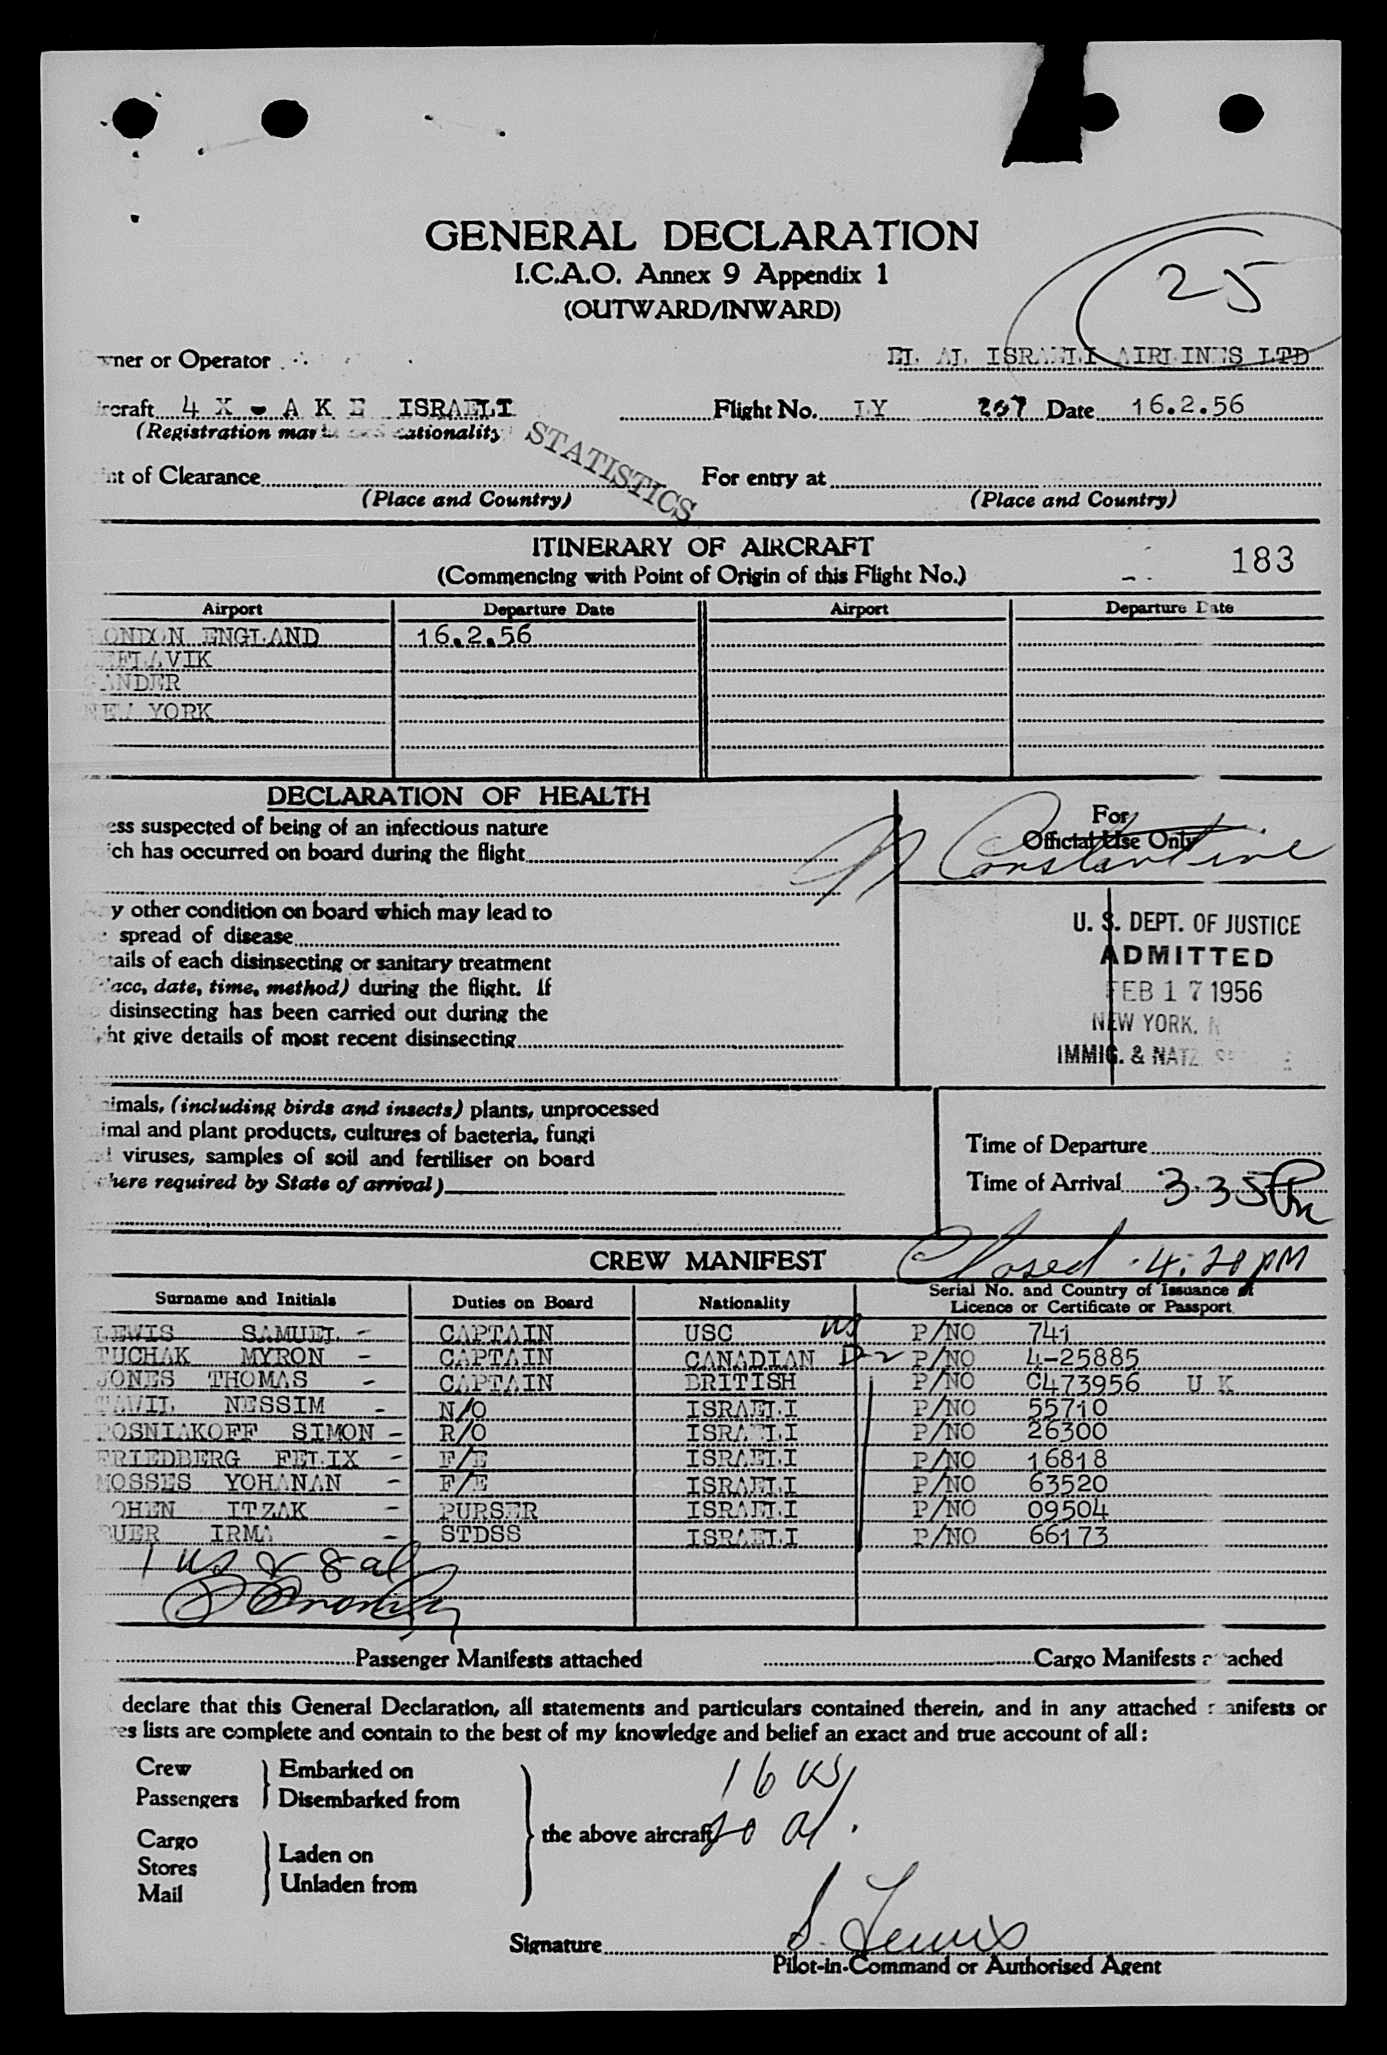 GENERAL DECLARATION
I.C.A.O. Annex 9 Appendix 1
(OUTWARD/INWARD)
25
wner or Operator EL AL ISRAELI AIRLINES LTD
ircraft 4 X - A K E ISRAELI Flight No. LY 207 Date 16.2.56
(Registration mar ationality
STATISTICS
nt of Clearance For entry at
(Place and Country) (Place and Country)
ITINERARY OF AIRCRAFT
(Commencing with Point of Origin of this Flight No.)
183
Airport Departure Date Airport Departure Date
LONDON ENGLAND 16.2.56
KEFLAVIK
GANDER
NEW YORK
DECLARATION OF HEALTH
ess suspected of being of an infectious nature
ich has occurred on board during the flight
For
Official Use Only
Constantine
y other condition on board which may lead to
spread of disease
tails of each disinsecting or sanitary treatment
lace, date, time, method) during the flight. If
disinsecting has been carried out during the
ht give details of most recent disinsecting
U. S. DEPT. OF JUSTICE
ADMITTED
FEB 17 1956
NEW YORK, N
IMMIG. & NATZ
imals, (including birds and insects) plants, unprocessed
imal and plant products, cultures of bacteria, fungi
viruses, samples of soil and fertiliser on board
here required by State of arrival)
Time of Departure
Time of Arrival 3.35 Pm
CREW MANIFEST
Closed 4:20 PM
Surname and Initials Duties on Board Nationality Serial No. and Country of Issuance of Licence or Certificate or Passport
LEWIS SAMUEL - CAPTAIN USC US P/NO 741
TUCHAK MYRON - CAPTAIN CANADIAN D-2 P/NO 4-25885
JONES THOMAS - CAPTAIN BRITISH P/NO C473956 U K
TAWIL NESSIM - N/O ISRAELI P/NO 55710
POSNIAKOFF SIMON - R/O ISRAELI P/NO 26300
FRIEDBERG FELIX - F/E ISRAELI P/NO 16818
MOSSES YOHANAN - F/E ISRAELI P/NO 63520
OHEN ITZAK - PURSER ISRAELI P/NO 09504
UER IRMA - STDSS ISRAELI P/NO 66173
1 US & 8 al
Passenger Manifests attached Cargo Manifests a ached
declare that this General Declaration, all statements and particulars contained therein, and in any attached manifests or
es lists are complete and contain to the best of my knowledge and belief an exact and true account of all:
Crew Embarked on
Passengers Disembarked from
16 US
the above aircraft
20 al.
Cargo
Stores Laden on
Mail Unladen from
Signature S. Lewis
Pilot-in-Command or Authorised Agent